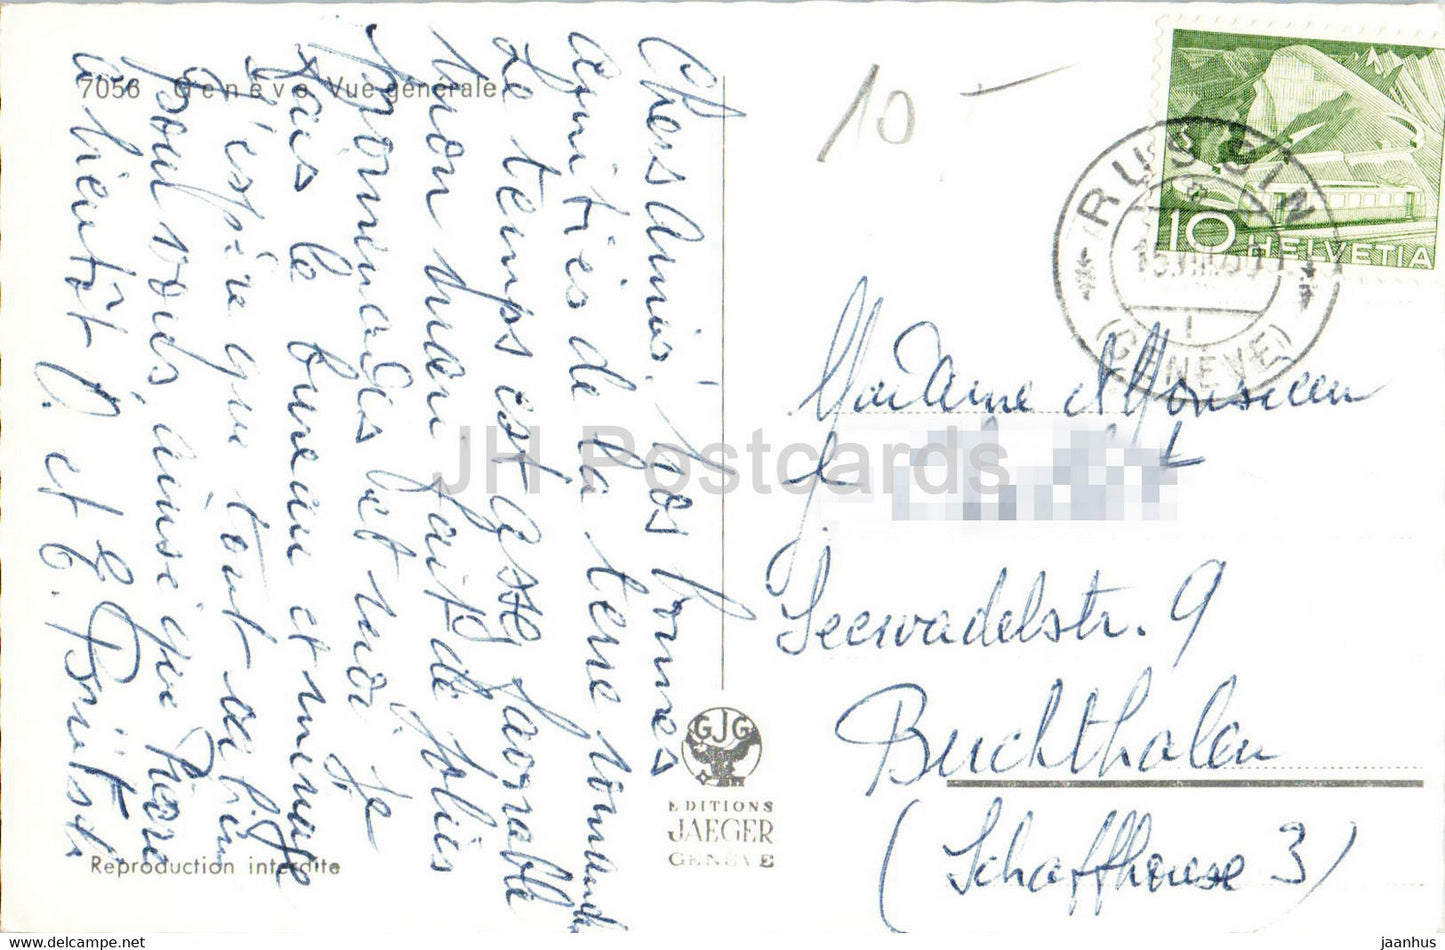 7056 Genève. Vue générale
Chers Amis, Nos bonnes
amitiés de la terre romande
Le temps est assez favorable
mon mari fait de jolies
promenades et moi je
fais le bureau et ménage
J'espère que tout va bien
pour vous, ainsi que
à bientôt O. et E. Brütsch
Reproduction interdite
GJG
EDITIONS
JAEGER
GENÈVE
10 -
10 HELVETIA
RUSSIN
(GENÈVE)
Madame et Monsieur
Seewadelstr. 9
Buchthalen
(Schaffhouse 3)
JH Postcards
https://www.delcampe.net
jaanhus